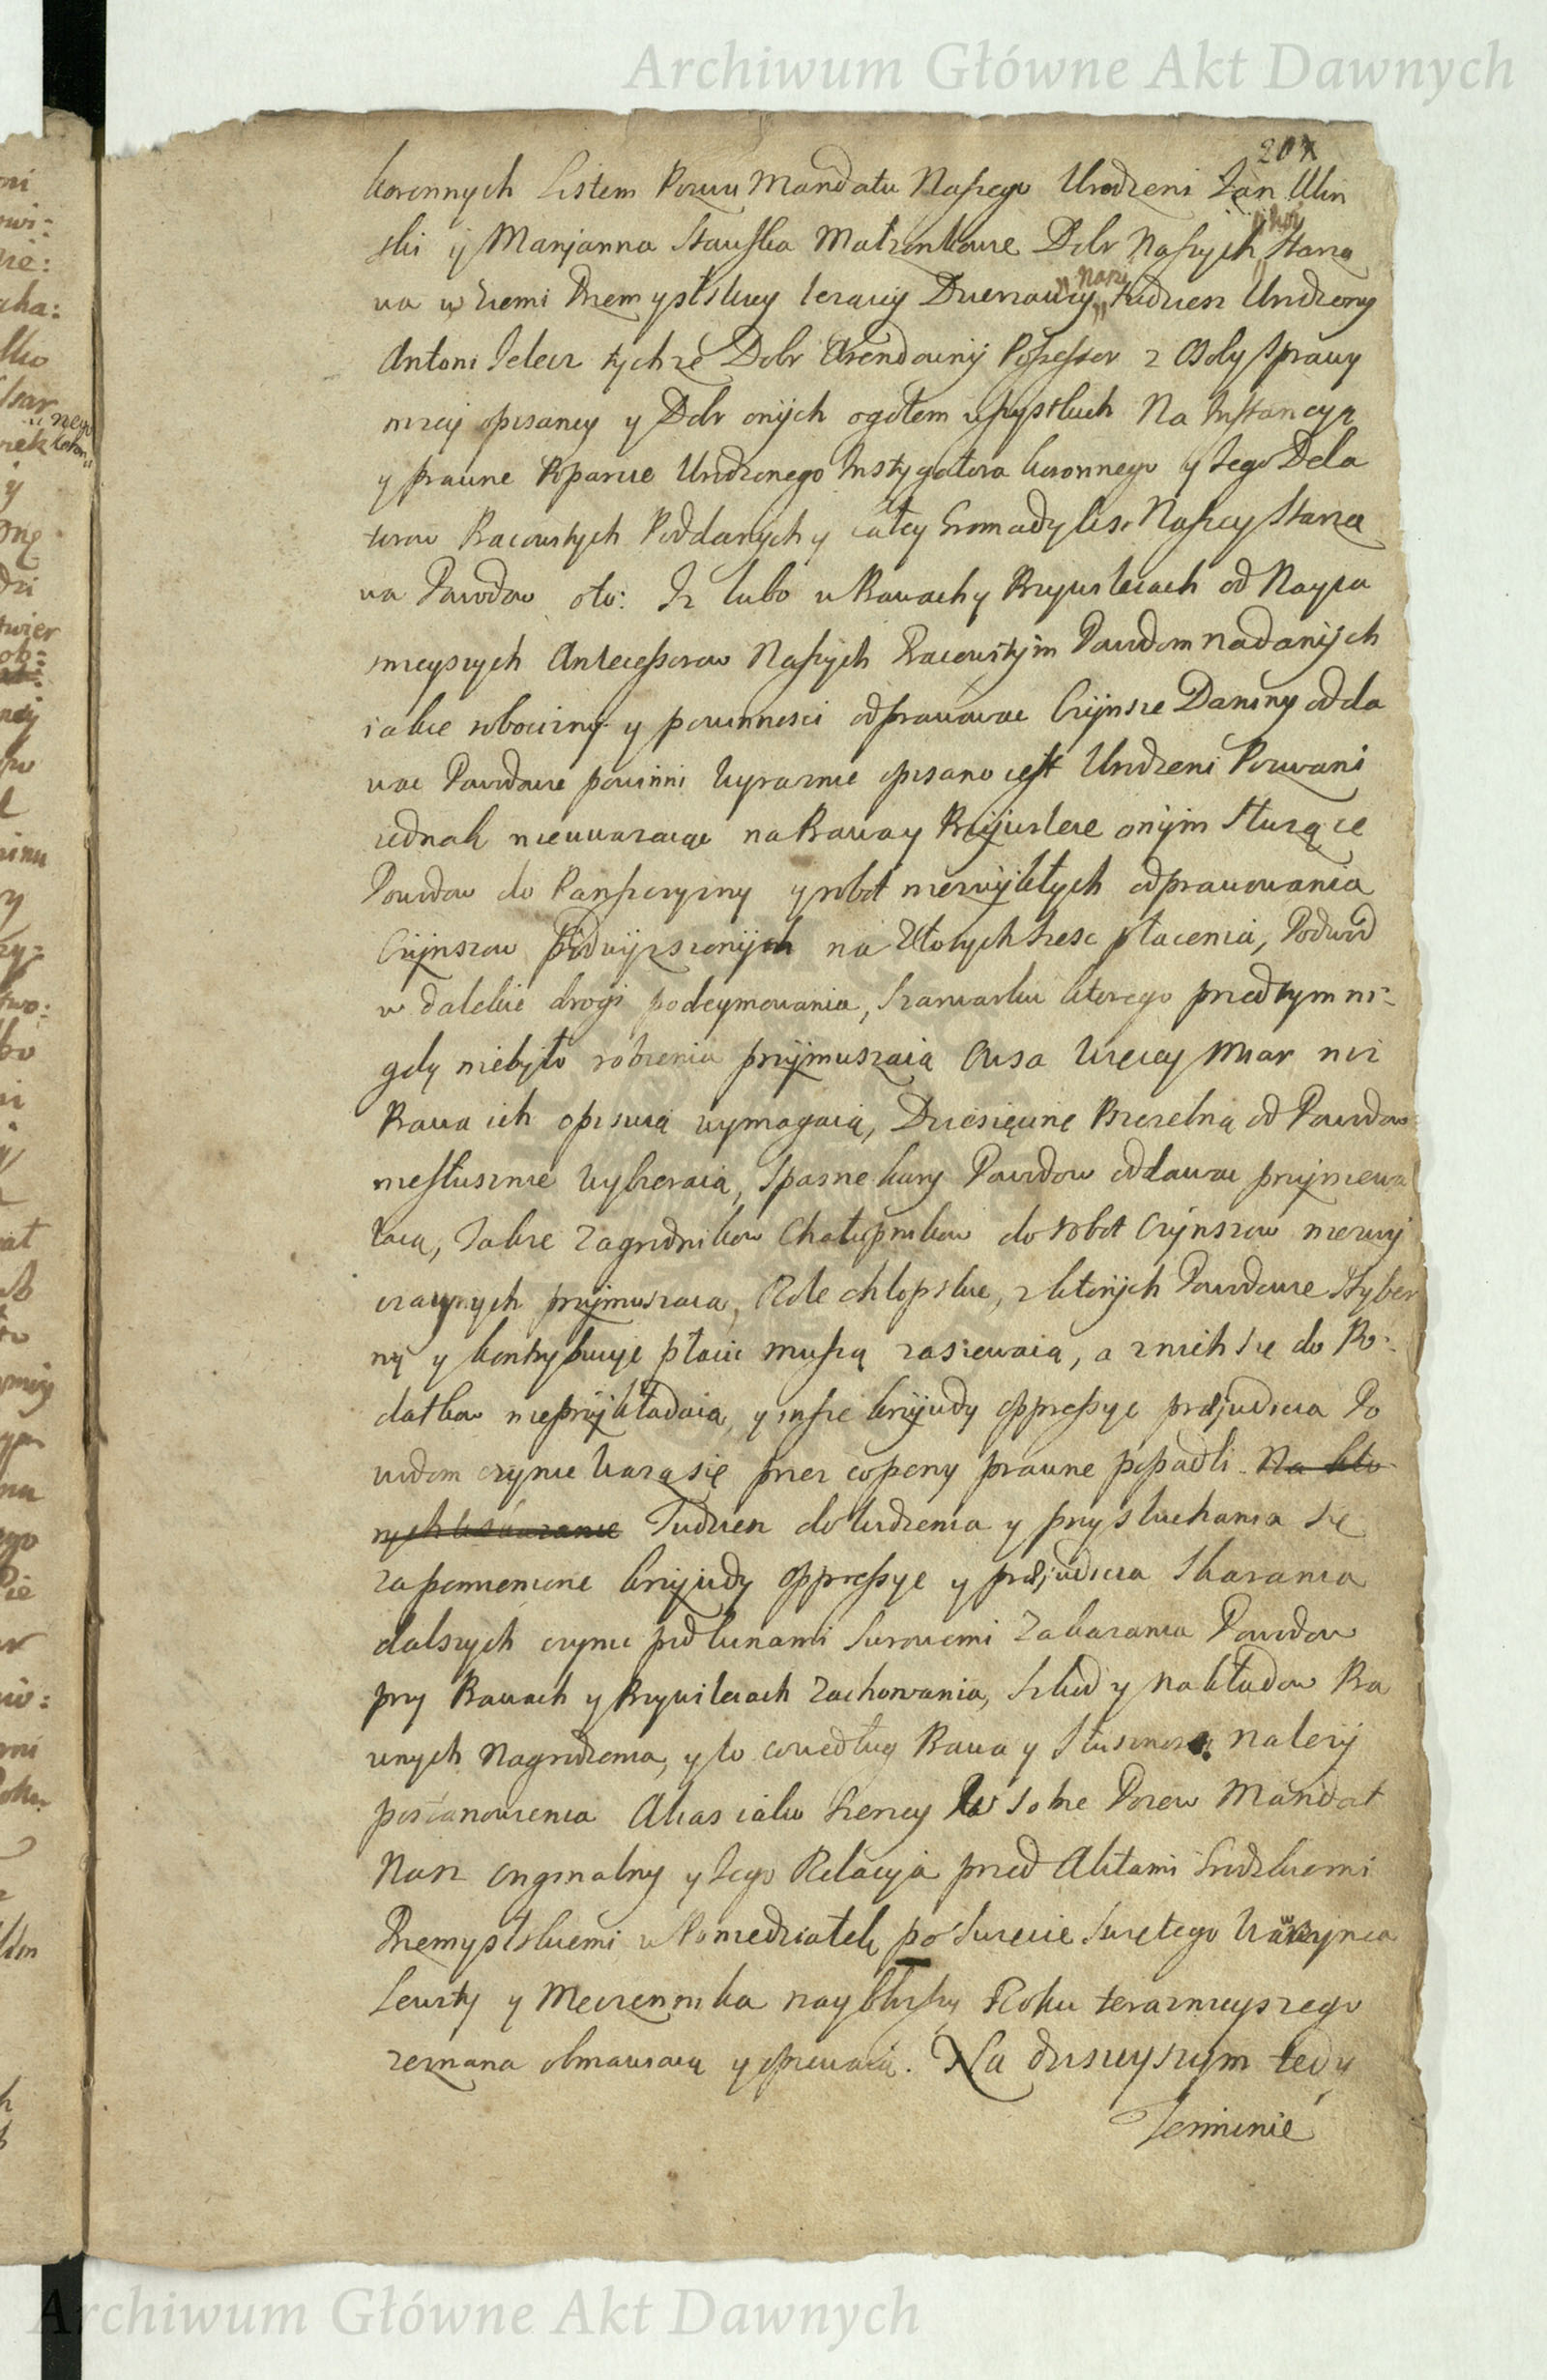 Archiwum Główne Akt Dawnych
207
koronnych Listem Pozwu Mandatu Naszego Urodzeni Jan Ulin
ski y Marjanna Małzonkowie Dobr Naszych Starza
wa w Ziemi Przemyslskiey lezącey Dzierzawcy Tudziesz Urodzony
Antoni Jelecz tychze Dobr Arendowny Possessor z Osoby Sprawy
nizey opisaney y Dobr onych ogołem wszystkich Na Instancyą
y prawne Poparcie Urodzonego Instygatora koronnego y Jego Dela
torow Pracowitych Poddanych y całey Gromady Wsi Naszey Starza
wa Powodow oto: Iz lubo w Prawach y Przywileiach od Nayia
snieyszych Antecessorow Naszych Pracowitym Powodom nadanych
iakie robocizny y powinnosci odprawowac Czynsze Daniny odda
wac Powodowie powinni Wyraznie opisano iest Urodzeni Pozwani
iednak nieuwazaiąc na Prawa y Przywileie onym Słuzące
Powodow do Panszczyzny y robot niezwykłych odprawowania
Czynszow Podwyzszonych na Złotych szesc płacenia, Podwod
w dalekie drogi podeymowania, Szarwarku ktorego przedtym ni-
gdy niebyło robienia przymuszaią Owsa Więcey Miar niz
Prawa ich opisuią wymagaią, Dziesięcinę Pszczelną od Powodow
niesłusznie Wybieraią, Spasne kary Powodow oddawac przyniewa
laią, Takze Zagrodnikow Chałupnikow do robot Czynszow niezwy
czaynych przymuszaią, Role chłopskie, z ktorych Powodowie Hyber
nę y kontrybucye płacic muszą zasiewaią, a z nich się do Po-
datkow nieprzykładaią, y insze krzywdy oppressye prejudicia Po
wodom czynic Wazą się przez co peny prawne popadli Na kto
rych wskazanie Tudziez do Widzenia y przysłuchania się
zapomnione krzywdy oppressye y prejudicia Skarania
dalszych czynic pod winami surowemi Zakazania Powodow
przy Prawach y Przywileiach Zachowania, Szkod y Nakładow Pra
wnych Nagrodzenia, y to co według Prawa y Słusznosci nalezy
postanowienia Akas iako szerzey w sobie Pozew Mandat
Nasz oryginalny y Jego Relacyja przed Aktami Grodzkiemi
Przemyslskiemi w Poniedziałek po Swięcie Swiętego Wawrzynca
Lewity y Męczennika naybliszy Roku teraznieyszego
zeznana obmawiaią y opiewaią. Na dzisieyszym tedy
Terminie
Archiwum Główne Akt Dawnych